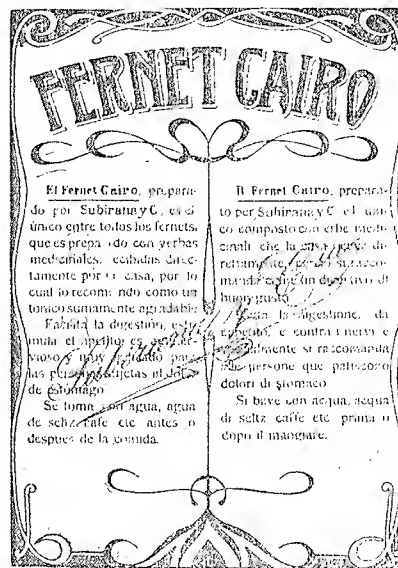 FERNET CAIRO
El Fernet Cairo, prepara-
do por Subirana y C, es el
único entre todos los fernets,
que es prepa do con yerbas
medicinales, direc-
tamente por casa, por lo
cual lo recomi ndo como un
tonico sumamente agradable
Facilita la digestión, esti-
mula el apetito es
vioso y muy para
las personas sujetas al
de estómago
Se toma con agua, agua
de seltz cafe etc antes o
despues de la comida.
Il Fernet Cairo, prepara-
to per Subirana y C é l'uni-
co composto con erbe medi-
cinali che la casa di-
rettamente,
manda come un di
buon gusto
la digestione, da
appetito, e contra i nervi e
si raccomanda
persone que patiscono
dolori di stomaco
Si beve con acqua, acqua
di seltz caffe etc prima o
dopo il mangiare.